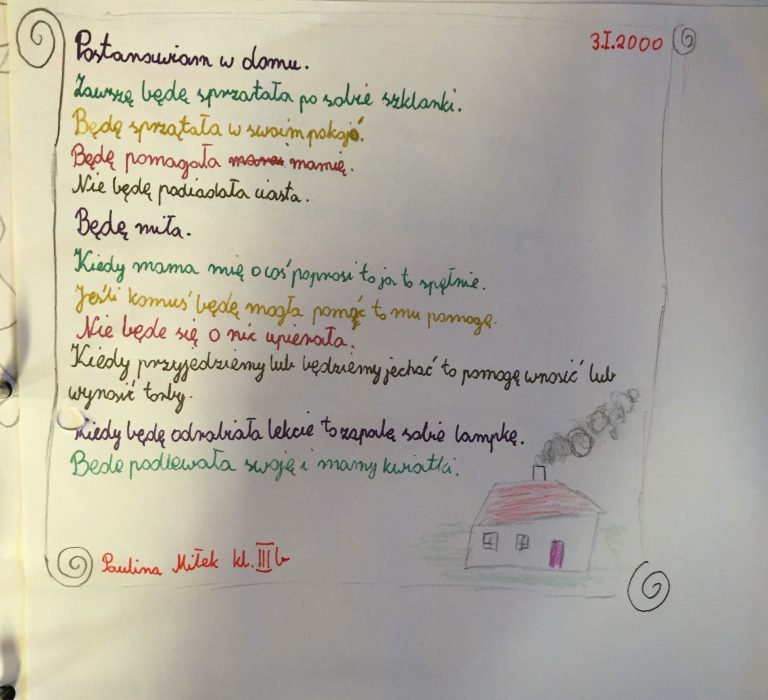 3I.2000
Postanowiam w domu.
Zawszę będę sprzatała po sobie szklanki.
Będę sprzątała w swoim pokojó.
Będę pomagała mamie mamię.
Nie będę podiadała ciasta.
Będę miła.
Kiedy mama mię o coś poprosi to ja to spęłnie.
Jeśli komuś będę mogła pomąc to mu pomogę.
Nie będe się o nic upierała.
Kiedy przyjedziemy lub będziemy jechać to pomogę wnosić lub
wynosić torby.
Kiedy będę odrabiała lekcie to zapalę sobie lampkę.
Bede podlewała swoję i mamy kwiatki.
Paulina Miłek kl. III b